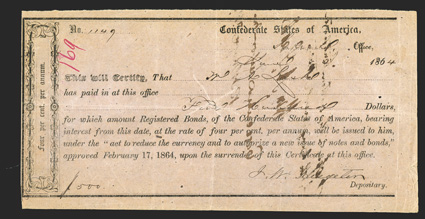 No. 1149
Confederate States of America,
Office,
169
1864
This will Certify, That
has paid in at this office
Dollars,
for which amount Registered Bonds, of the Confederate States of America, bearing
interest from this date, at the rate of four per cent. per annum, will be issued to him,
under the "act to reduce the currency and to authorize a new issue of notes and bonds,"
approved February 17, 1864, upon the surrender of this Certificate at this office.
Depositary.
Four per cent. per annum.